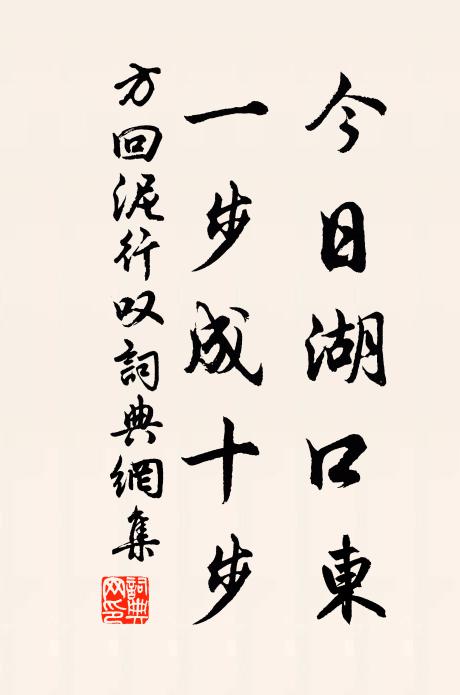 今日湖口東
一步成十步
方回泥行叹詞典網集
詞典网印